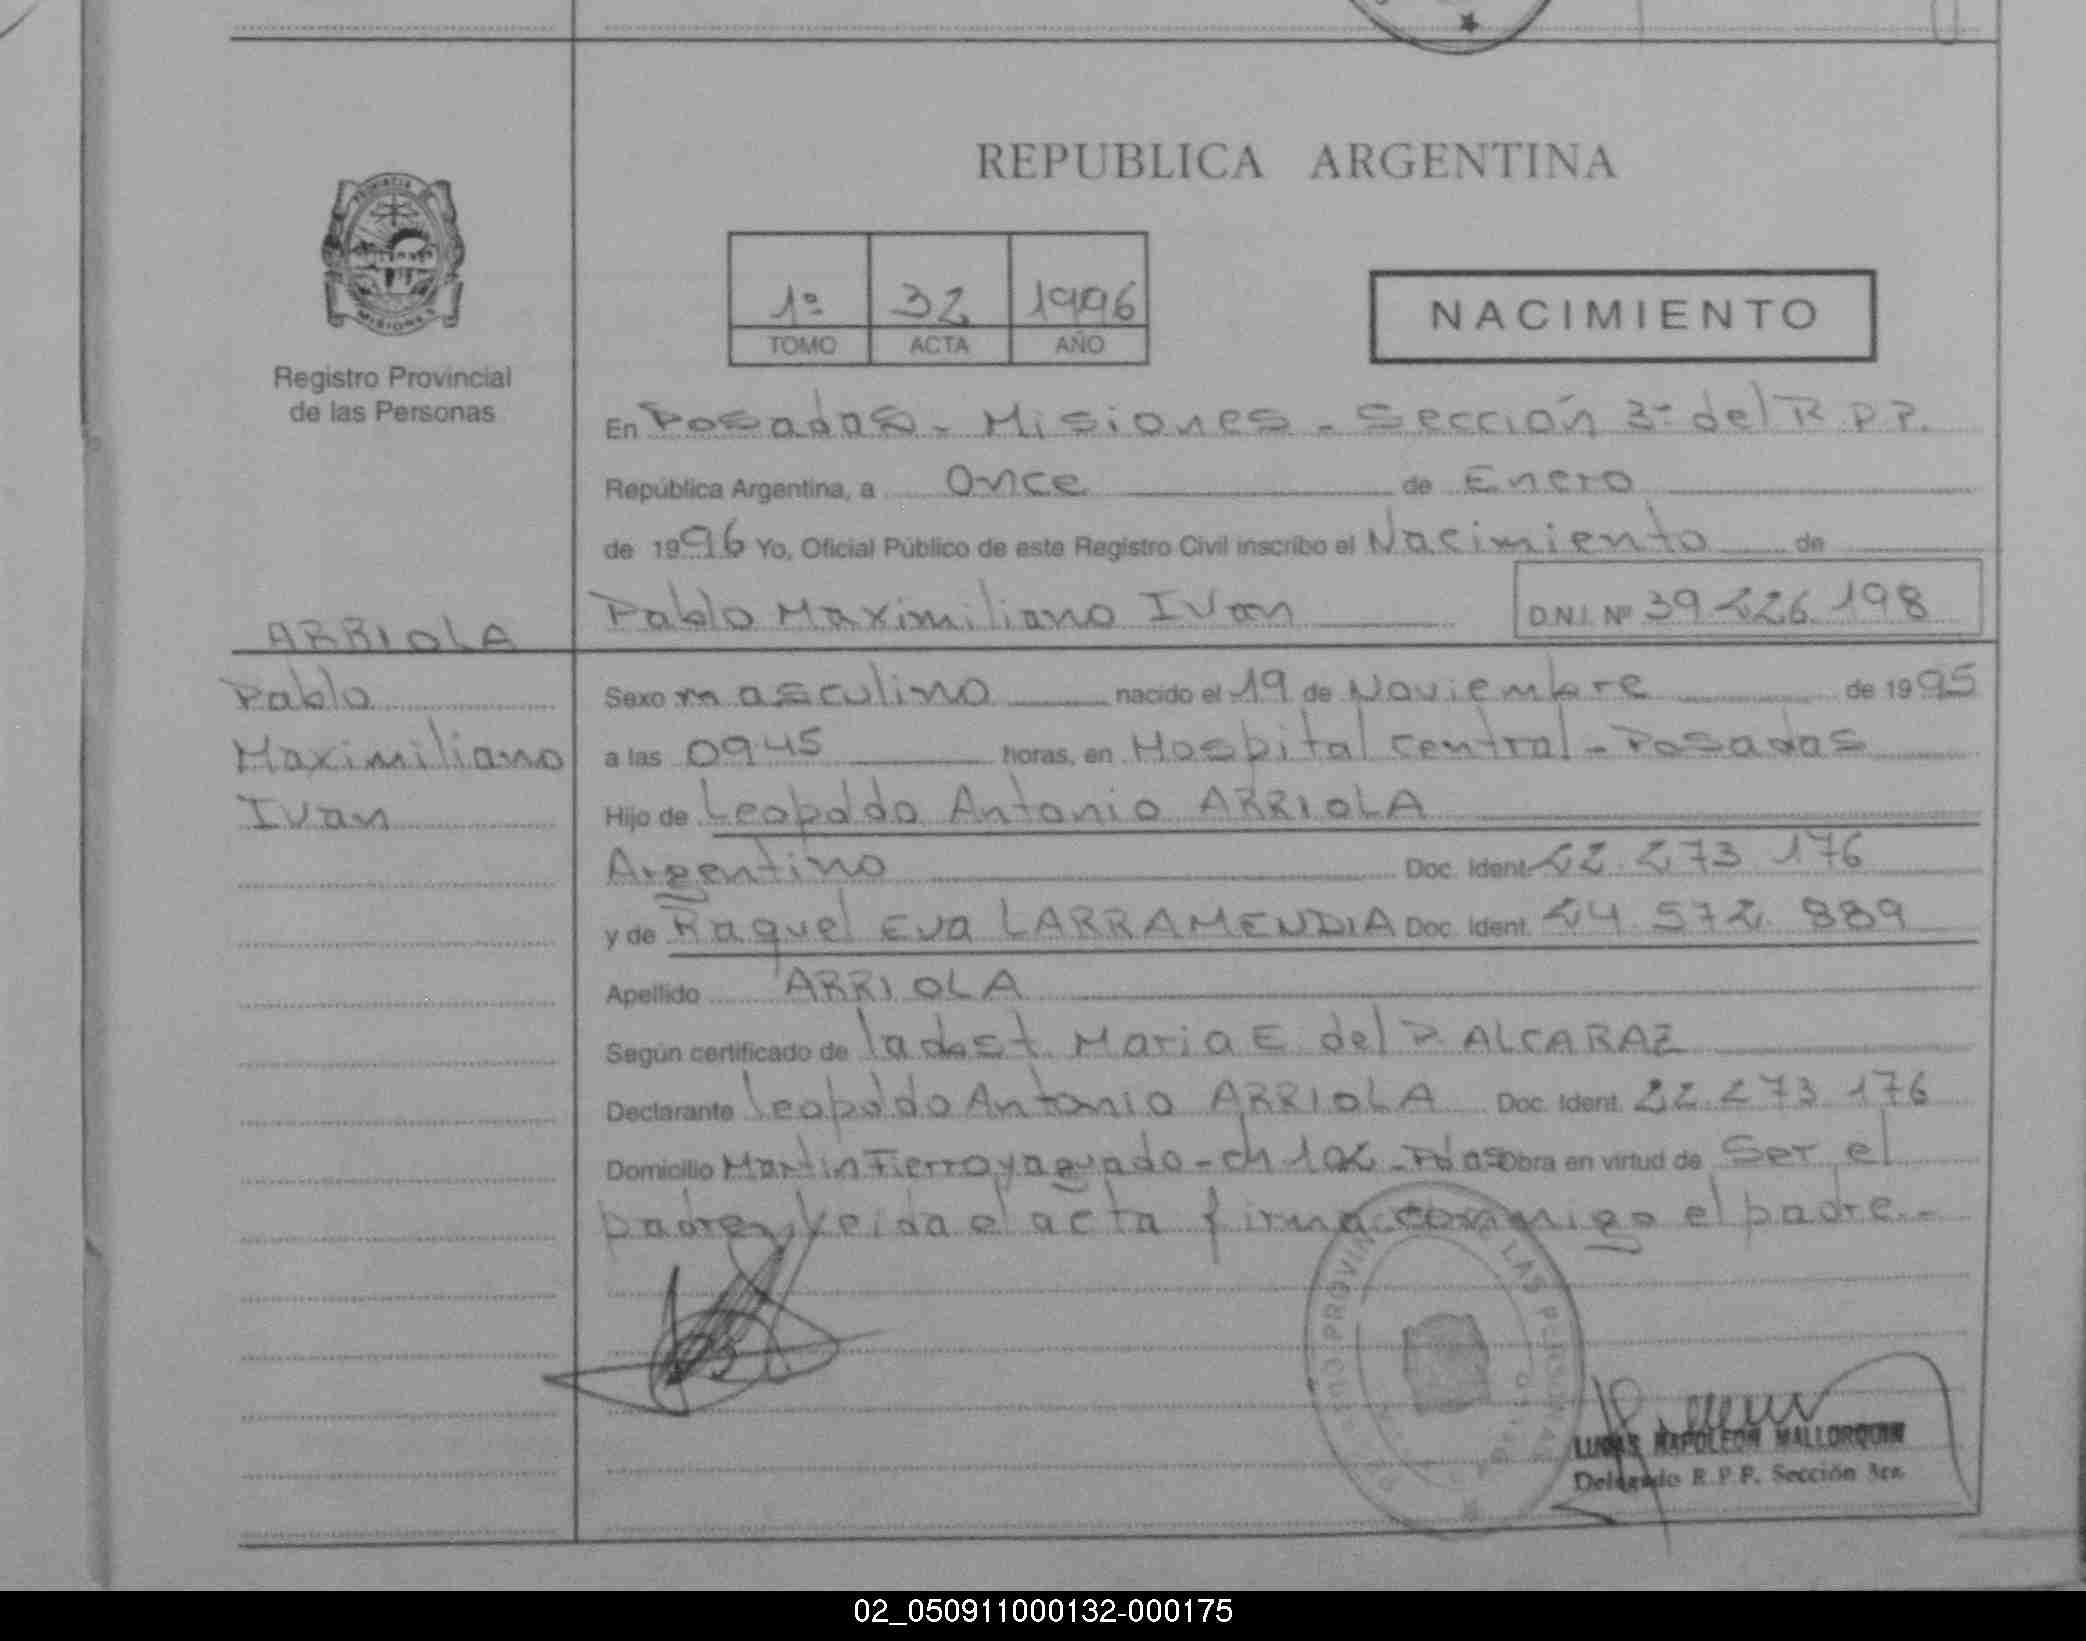 REPUBLICA ARGENTINA
MISIONES
Registro Provincial
de las Personas
1º 32 1996
TOMO ACTA AÑO
NACIMIENTO
En Posadas - Misiones - Sección 3º del R.P.P.
República Argentina, a Once de Enero
de 1996 Yo, Oficial Público de este Registro Civil inscribo el Nacimiento de
Pablo Maximiliano Ivan D.N.I. Nº 39.226.198
ARRIOLA
Pablo
Maximiliano
Ivan
Sexo masculino nacido el 19 de Noviembre de 1995
a las 09 45 horas, en Hospital central - Posadas
Hijo de Leopoldo Antonio ARRIOLA
Argentino Doc. Ident. 22.273.176
y de Raquel Eva LARRAMENDIA Doc. Ident. 24.572.889
Apellido ARRIOLA
Según certificado de la obst. Maria E. del P. ALCARAZ
Declarante Leopoldo Antonio ARRIOLA Doc. Ident. 22.273.176
Domicilio Martin Fierro y aguado - ch 102 - Pdas Obra en virtud de Ser el
padre, leida el acta firma conmigo el padre.-
LUCAS NAPOLEON MALLORQUIN
Delegado R.P.P. Sección 3ra.
02_050911000132-000175